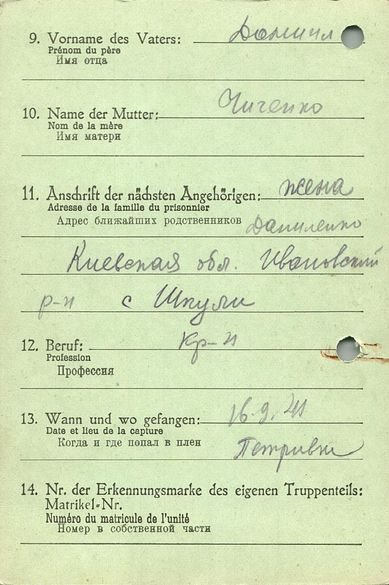 9. Vorname des Vaters: Данил
Prénom du père
Имя отца
10. Name der Mutter: Чиченко
Nom de la mère
Имя матери
11. Anschrift der nächsten Angehörigen: жена
Adresse de la famille du prisonnier
Адрес ближайших родственников Даниленко
Киевская обл. Ивановский
р-н с Шкули
12. Beruf: Кр-н
Profession
Профессия
13. Wann und wo gefangen: 16.9.41
Date et lieu de la capture
Когда и где попал в плен Петривки
14. Nr. der Erkennungsmarke des eigenen Truppenteils:
Matrikel-Nr.
Numéro du matricule de l'unité
Номер в собственной части